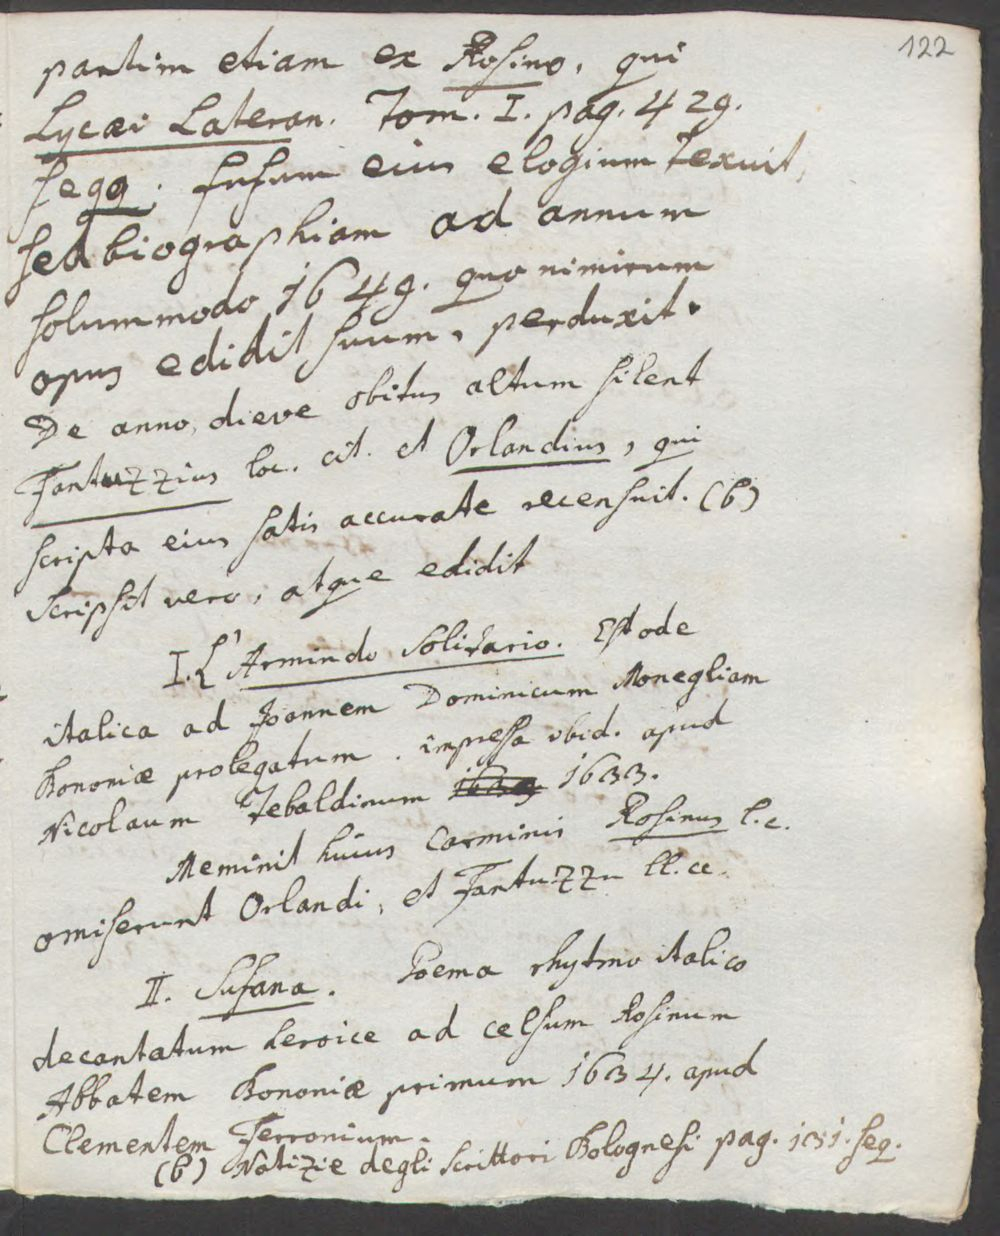 122
partim etiam ex Rosino, qui
Lycæi Lateran. Tom. I. pag. 429.
seqq. fusum eius elogium texuit,
sed biographiam ad annum
solummodo 1649. quo nimirum
opus edidit suum, perduxit.
De anno, dieve obitus altum silent
Fantuzzius loc. cit. et Orlandius, qui
scripta eius satis accurate recensuit. (b)
Scripsit vero, atque edidit
I. L'Armindo solitario. Est ode
italica ad Joannem Dominicum Monegliam
Bononiæ prolegatum. impressa ibid. apud
Nicolaum Tebaldinum 1633.
Meminit huius Carminis Rosinus l.c.
omiserunt Orlandi, et Fantuzzu ll.cc.
II. Susana. Poema rhytmo italico
decantatum heroice ad celsum Rosinum
Abbatem Bononiæ primum 1634. apud
Clementem Ferronium.
(b) Notizie degli scrittori Bolognesi pag. 131. seq.